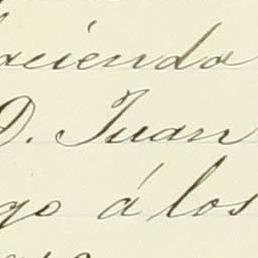 aciendo
D. Juan
go á los